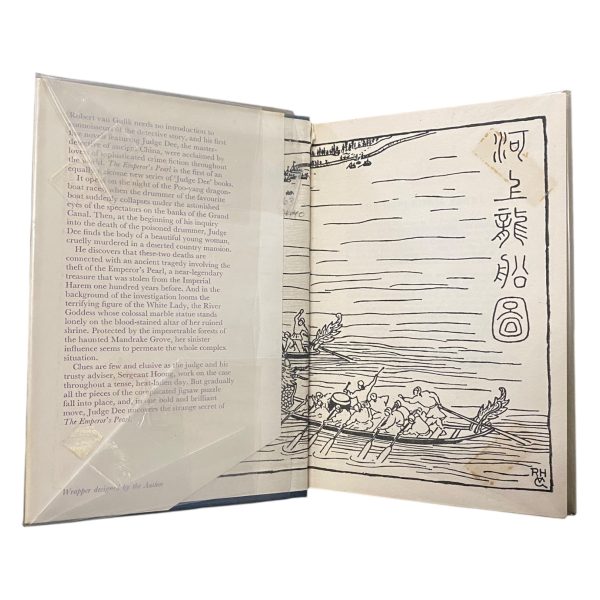 Robert van Gulik needs no introduction to
connoisseurs of the detective story, and his first
five novels featuring Judge Dee, the master-
detective of ancient China, were acclaimed by
lovers of sophisticated crime fiction throughout
the world. The Emperor's Pearl is the first of an
equally welcome new series of 'Judge Dee' books.
It opens on the night of the Poo-yang dragon-
boat races, when the drummer of the favourite
boat suddenly collapses under the astonished
eyes of the spectators on the banks of the Grand
Canal. Then, at the beginning of his inquiry
into the death of the poisoned drummer, Judge
Dee finds the body of a beautiful young woman,
cruelly murdered in a deserted country mansion.
He discovers that these two deaths are
connected with an ancient tragedy involving the
theft of the Emperor's Pearl, a near-legendary
treasure that was stolen from the Imperial
Harem one hundred years before. And in the
background of the investigation looms the
terrifying figure of the White Lady, the River
Goddess whose colossal marble statue stands
lonely on the blood-stained altar of her ruined
shrine. Protected by the impenetrable forests of
the haunted Mandrake Grove, her sinister
influence seems to permeate the whole complex
situation.
Clues are few and elusive as the judge and his
trusty adviser, Sergeant Hoong, work on the case
throughout a tense, heat-laden day. But gradually
all the pieces of the complicated jigsaw puzzle
fall into place, and, in one bold and brilliant
move, Judge Dee uncovers the strange secret of
The Emperor's Pearl.
Wrapper designed by the Author
河上龍船圖
RH